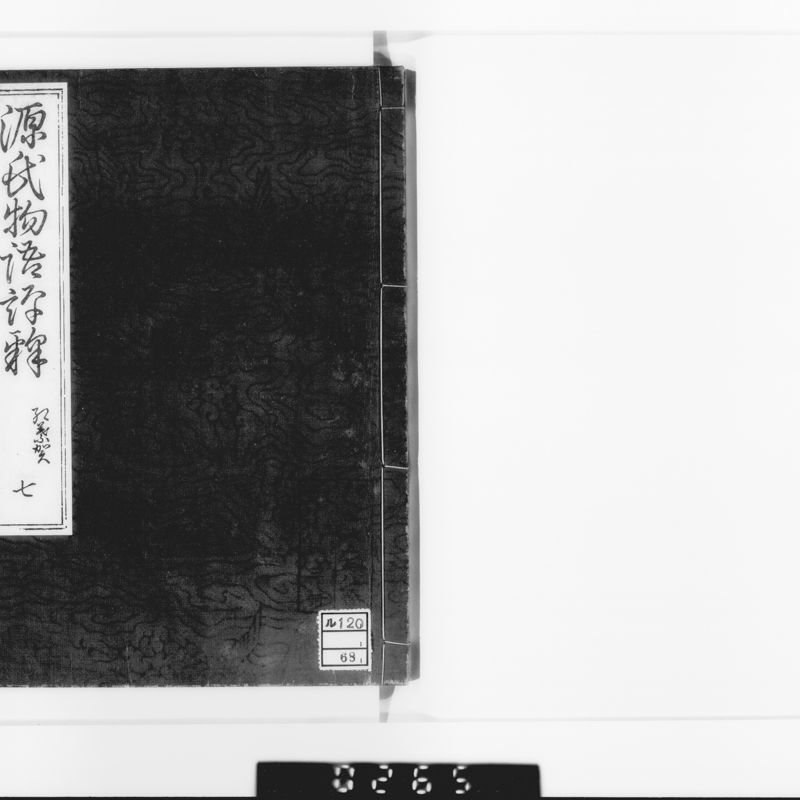 源氏物語評釋
紅葉賀
七
ル120
1
68,
0265